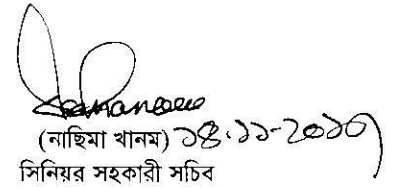 (নাছিমা খানম) ১৪.১১-২০১৭
সিনিয়র সহকারী সচিব